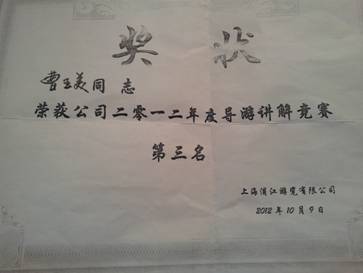 奖 状
曹玉美同 志
荣获公司二零一二年度导游讲解竞赛
第三名
上海浦江游览有限公司
2012 年 10 月 9 日